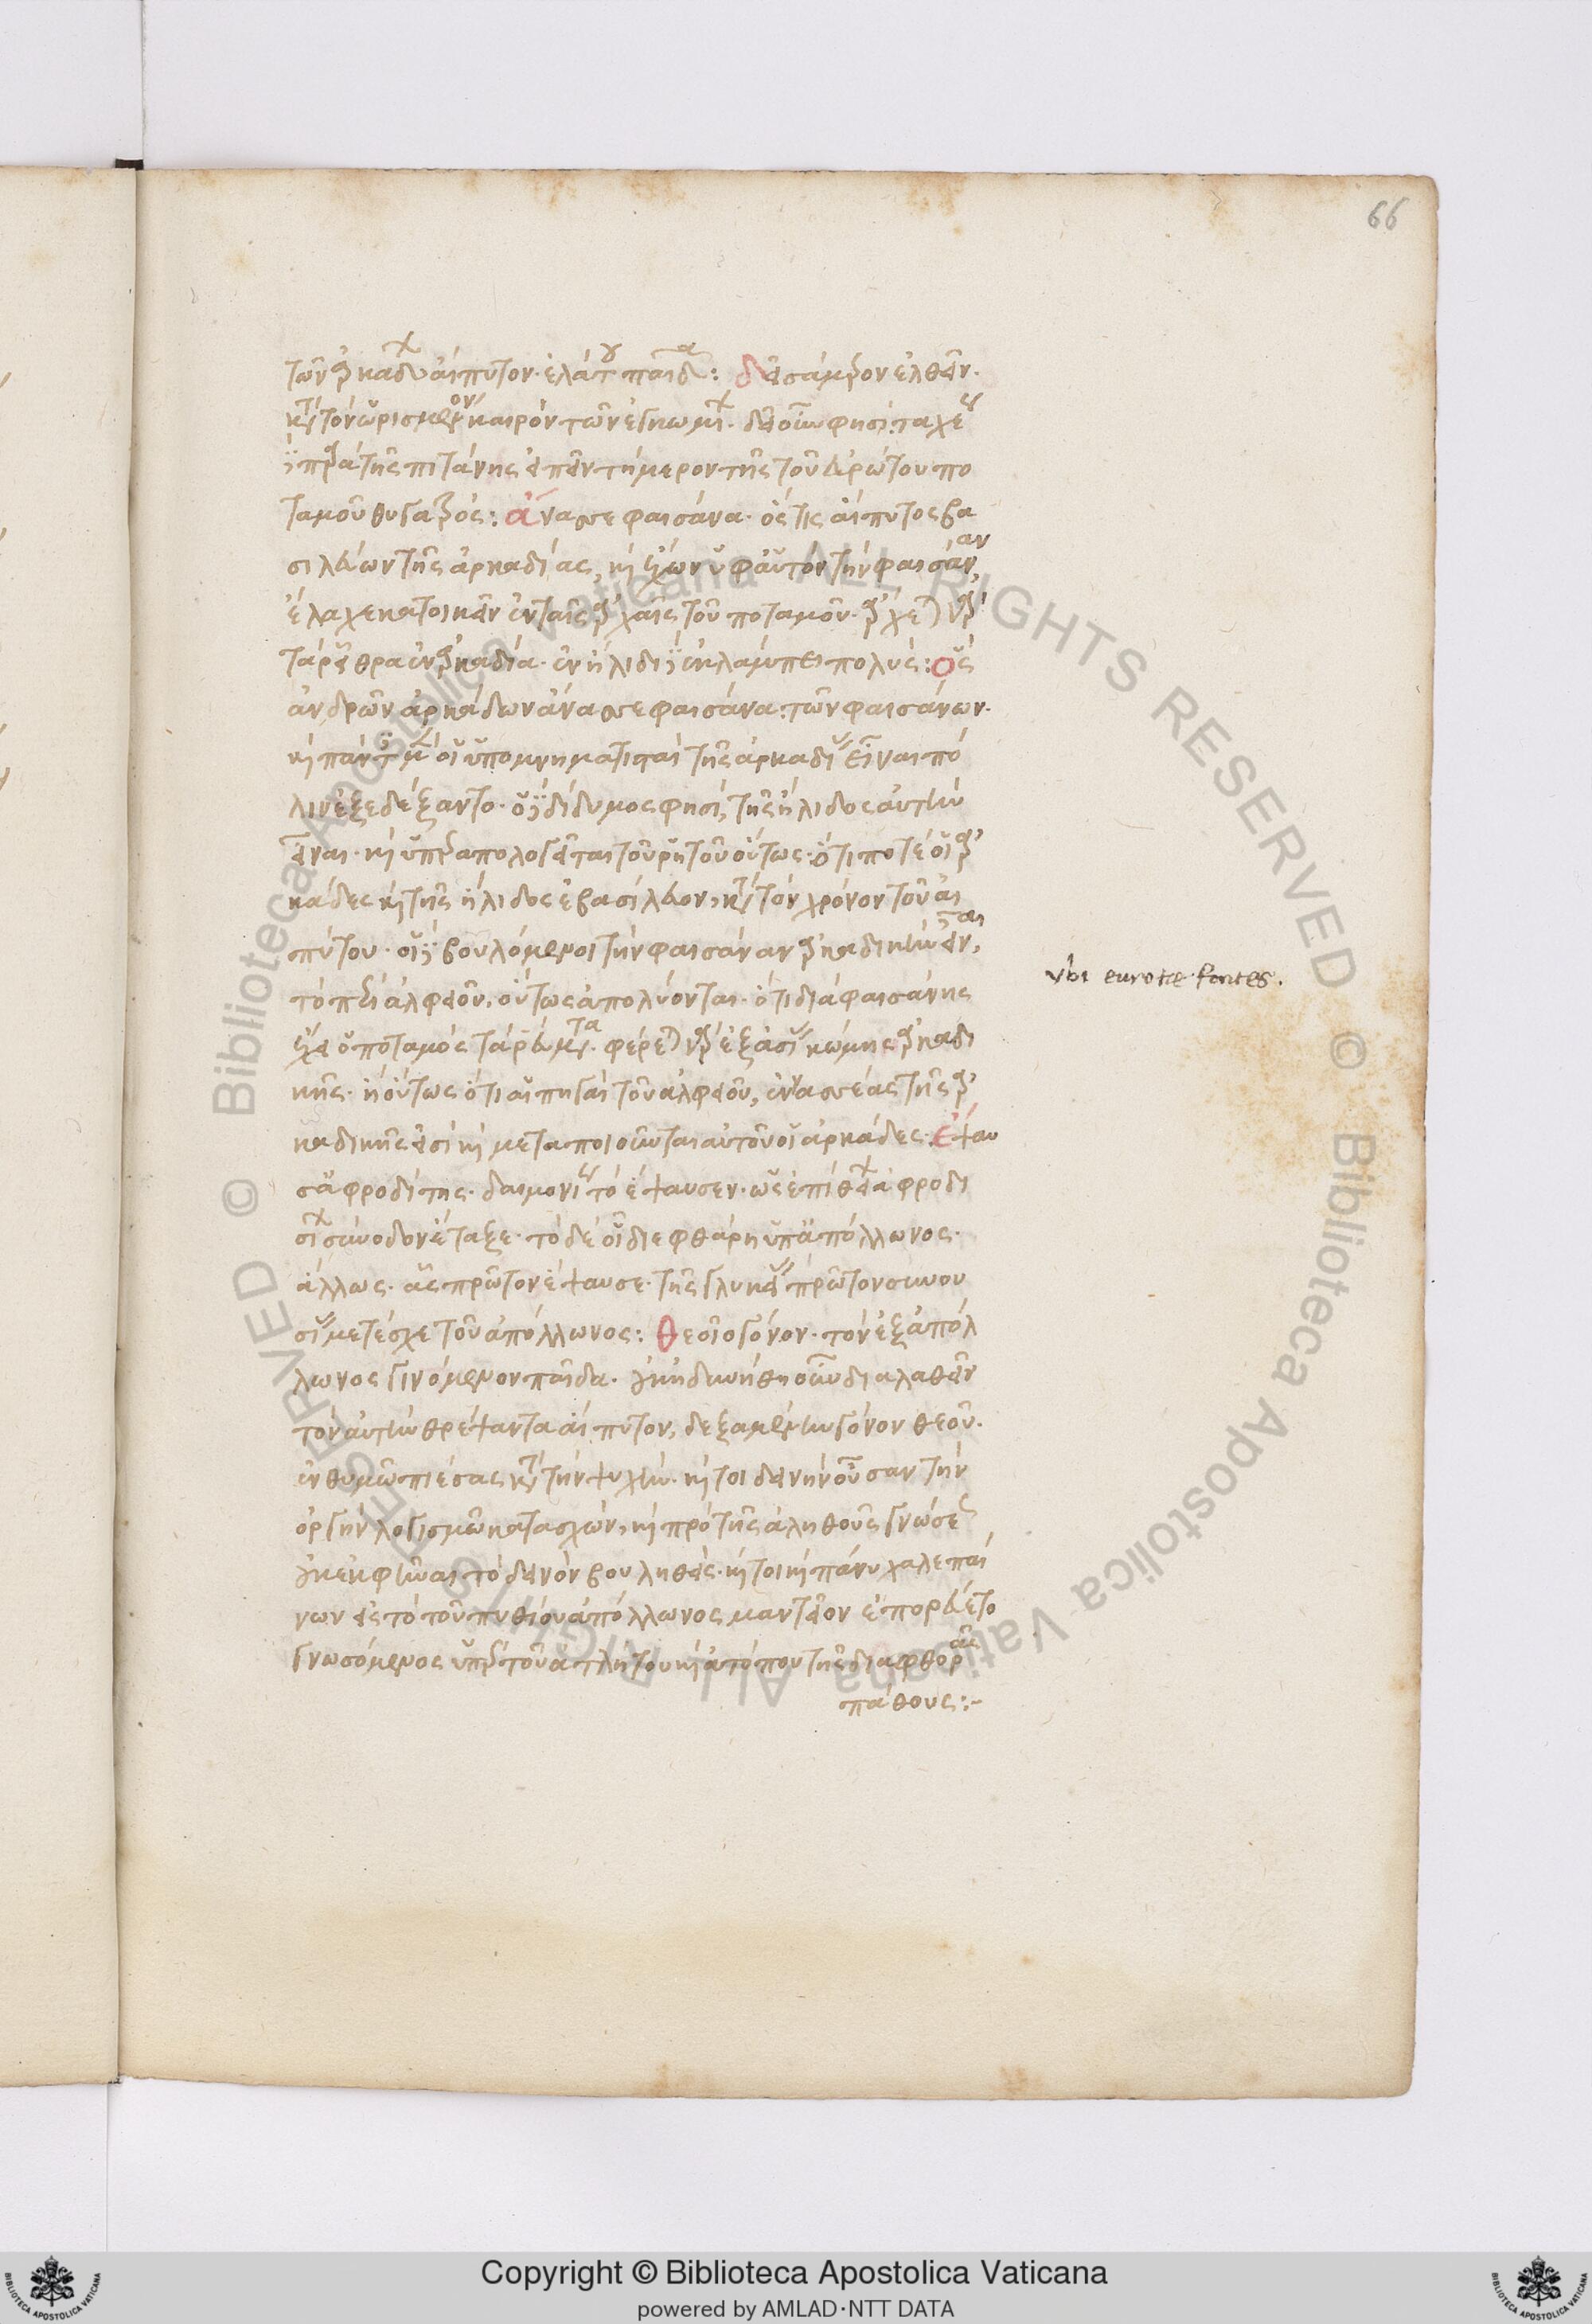 66
τῶν ἀρκάδων αἴπυτον· ἐλάτου παῖδα: δεῖ σάμερον ἐλθεῖν·
κατὰ τὸν ὡρισμένον καιρὸν τῶν ἐγκωμίων· δεῖ οὖν φησι ταχέως
πρὸς τῆς πιτάνης ἐλθεῖν τήμερον τῆς τοῦ εὐρώτου πο
ταμοῦ θυγατρός: ἄνασσε φαισάνα· ὅς τις αἴπυτος βα
σιλεύων τῆς ἀρκαδίας, καὶ ἔχων ὑφ' αὑτὸν τὴν φαισάναν,
ἔλαχε κατοικεῖν ἐν ταῖς ἀρχαῖς τοῦ ποταμοῦ· ἄρχεται γὰρ
τὰ ῥεῖθρα ἐν ἀρκαδία· ἐν ἤλιδι δὲ ἐκλάμπει πολύς: ὃς
ἀνδρῶν ἀρκάδων ἄνασσε φαισάνα· τῶν φαισάνων·
καὶ πάντες μὲν οἱ ὑπομνηματισταὶ τῆς ἀρκαδίας εἶναι πό
λιν ἐξεδέξαντο· ὁ δὲ δίδυμος φησὶ, τῆς ἤλιδος αὐτὴν
εἶναι· καὶ ὑπεραπολογεῖται τοῦ ῥητοῦ οὕτως· ὅτι ποτὲ οἱ ἀρ
κάδες καὶ τῆς ἤλιδος ἐβασίλευον, κατὰ τὸν χρόνον τοῦ αἰ
πύτου· οἱ δὲ βουλόμενοι τὴν φαισάναν ἀρκαδικὴν εἶναι,
τὸ περὶ ἀλφειοῦ, οὕτως ἀπολύονται· ὅτι διὰ φαισάνης
ἔχει ὁ ποταμὸς τὰ ῥεύματα· φέρεται γὰρ ἐξ ἀσίας κώμης ἀρκαδι
κῆς· ἢ οὕτως ὅτι αἱ πηγαὶ τοῦ ἀλφειοῦ, ἐν ἀσέας τῆς ἀρ
καδικῆς εἰσὶ καὶ μεταποιοῦνται αὐτοῦ οἱ ἀρκάδες: ἔψαυ
σ' ἀφροδίτης· δαιμονίως τὸ ἔψαυσεν· ὡς ἐπὶ θείαν ἀφροδι
σίων σύνοδον ἔταξε· τὸ δὲ οἷ διεφθάρη ὑπ' ἀπόλλωνος·
ἄλλως· ἇς πρῶτον ἔψαυσε· τῆς γλυκείας πρῶτον συνου
σίας μετέσχε τοῦ ἀπόλλωνος: θεοῖο γόνον· τὸν ἐξ ἀπόλ
λωνος γινόμενον παῖδα· οὐκ ἠδυνήθη οὖν διαλαθεῖν
τὸν αὐτὴν θρέψαντα αἴπυτον, δεξαμένην γόνον θεοῦ·
ἐν θυμῶ πιέσας κατὰ τὴν ψυχὴν· ἤτοι δεινὴν οὖσαν τὴν
ὀργὴν λογισμῶ κατασχὼν, καὶ πρὸ τῆς ἀληθοῦς γνώσεως
οὐκ ἐκφῆναι τὸ δεινὸν βουληθεὶς· ἤτοι καὶ πάνυ χαλεπαί
νων εἰς τὸ τοῦ πυθίου ἀπόλλωνος μαντεῖον ἐπορεύετο
γνωσόμενος ὑπὲρ τοῦ ἀτλήτου καὶ ἀτόπου τῆς διαφθορᾶς
πάθους:-
vbi eurotæ fontes.
© Biblioteca Apostolica Vaticana ALL RIGHTS RESERVED © Biblioteca Apostolica Vaticana ALL RIGHTS RESERVED
Copyright © Biblioteca Apostolica Vaticana
powered by AMLAD·NTT DATA
BIBLIOTECA APOSTOLICA VATICANA
BIBLIOTECA APOSTOLICA VATICANA